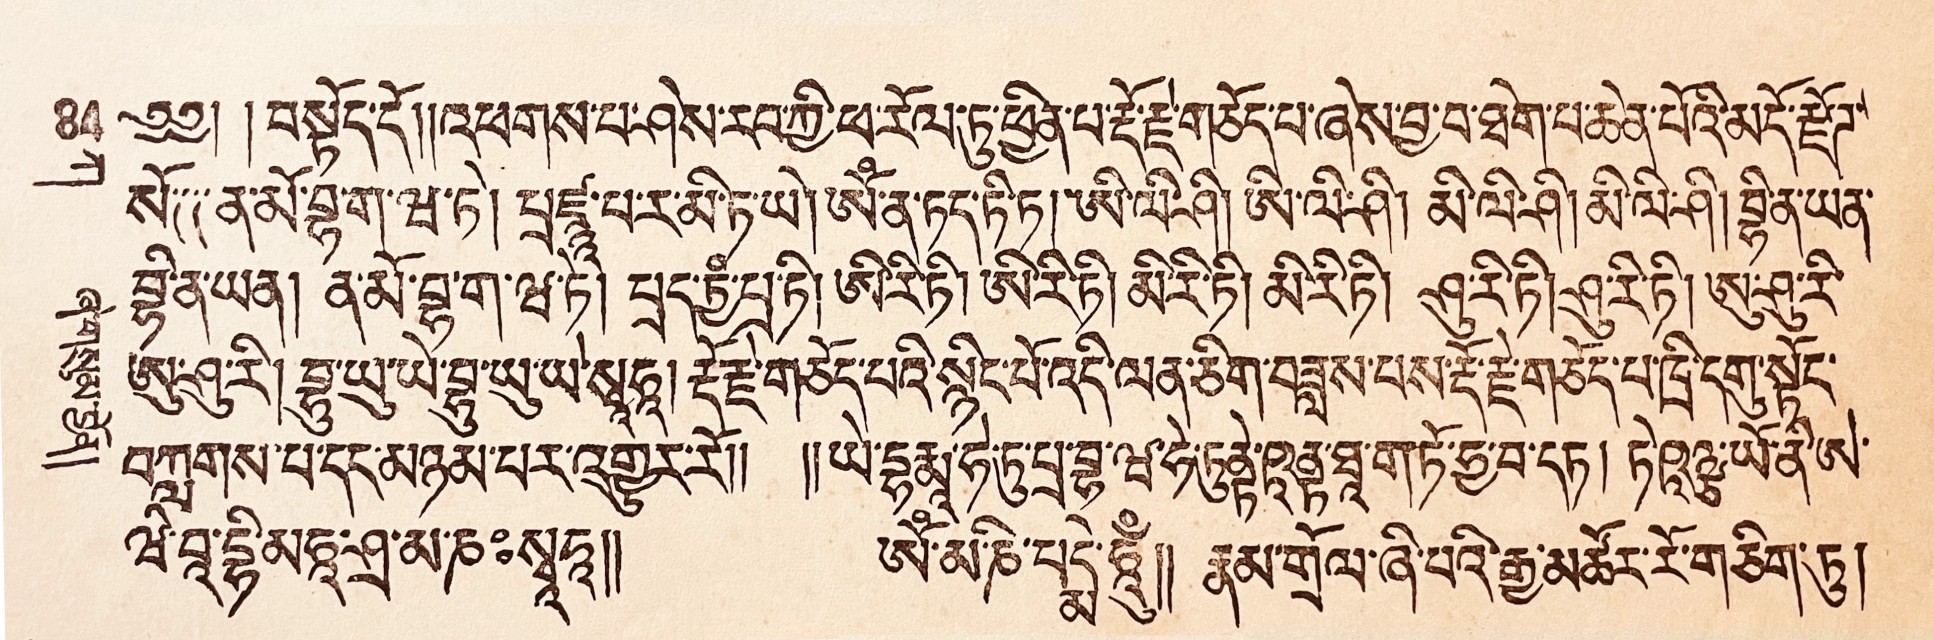 84 ༄༅། །བསྟོད་དོ།།འཕགས་པ་ཤེས་རབ་ཀྱི་ཕ་རོལ་ཏུ་ཕྱིན་པ་རྡོ་རྗེ་གཅོད་པ་ཞེས་བྱ་བ་ཐེག་པ་ཆེན་པོའི་མདོ་རྫོད་
སོ༎ ན་མོ་བྷ་ག་ཝ་ཏེ། པྲཛྙཱ་པ་ར་མི་ཏ་ཡེ། ཨོཾ་ན་ཏད་ཏི་ཏ། ཨི་ལི་ཤི། ཨི་ལི་ཤི། མི་ལི་ཤི། མི་ལི་ཤི། བྷི་ན་ཡན་
བྷི་ན་ཡན། ན་མོ་བྷ་ག་ཝ་ཏེ། པྲད་ཏྱཾ་པྲ་ཏི། ཨི་རི་ཏི། ཨི་རི་ཏི། མི་རི་ཏི། མི་རི་ཏི། ཤུ་རི་ཏི། ཤུ་རི་ཏི། ཨུ་ཤུ་རི
ཨུ་ཤུ་རི། བྷུ་ཡུ་ཡེ་བྷུ་ཡུ་ཡ་སྭཱཧཱ། རྡོ་རྗེ་གཅོད་པའི་སྙིང་པོ་འདི་ལན་ཅིག་བཟླས་པས་རྡོ་རྗེ་གཅོད་པ་ཁྲི་དགུ་སྟོང་
བཀླགས་པ་དང་མཉམ་པར་འགྱུར་རོ།། ༎ཡེ་དྷརྨཱ་ཧེ་ཏུ་པྲ་བྷ་ཝ་ཧེ་ཏུནྟེ་ཥཱནྟ་ཐཱ་གཏོ་ཧྱ་བ་དཏ། ཏེ་ཥཱཉྩ་ཡོ་ནི་ཨ་
ཝཾ་བཱ་དྷི་མཧཱ་ཤྲ་མ་ཎ་ཿསྭཱཧཱ།། ཨོཾ་མ་ཎི་པདྨེ་ཧཱུྃ།། རྣམ་གྲོལ་ཞི་བའི་རྒྱ་མཚོར་རོ་གཅིག་ཏུ།